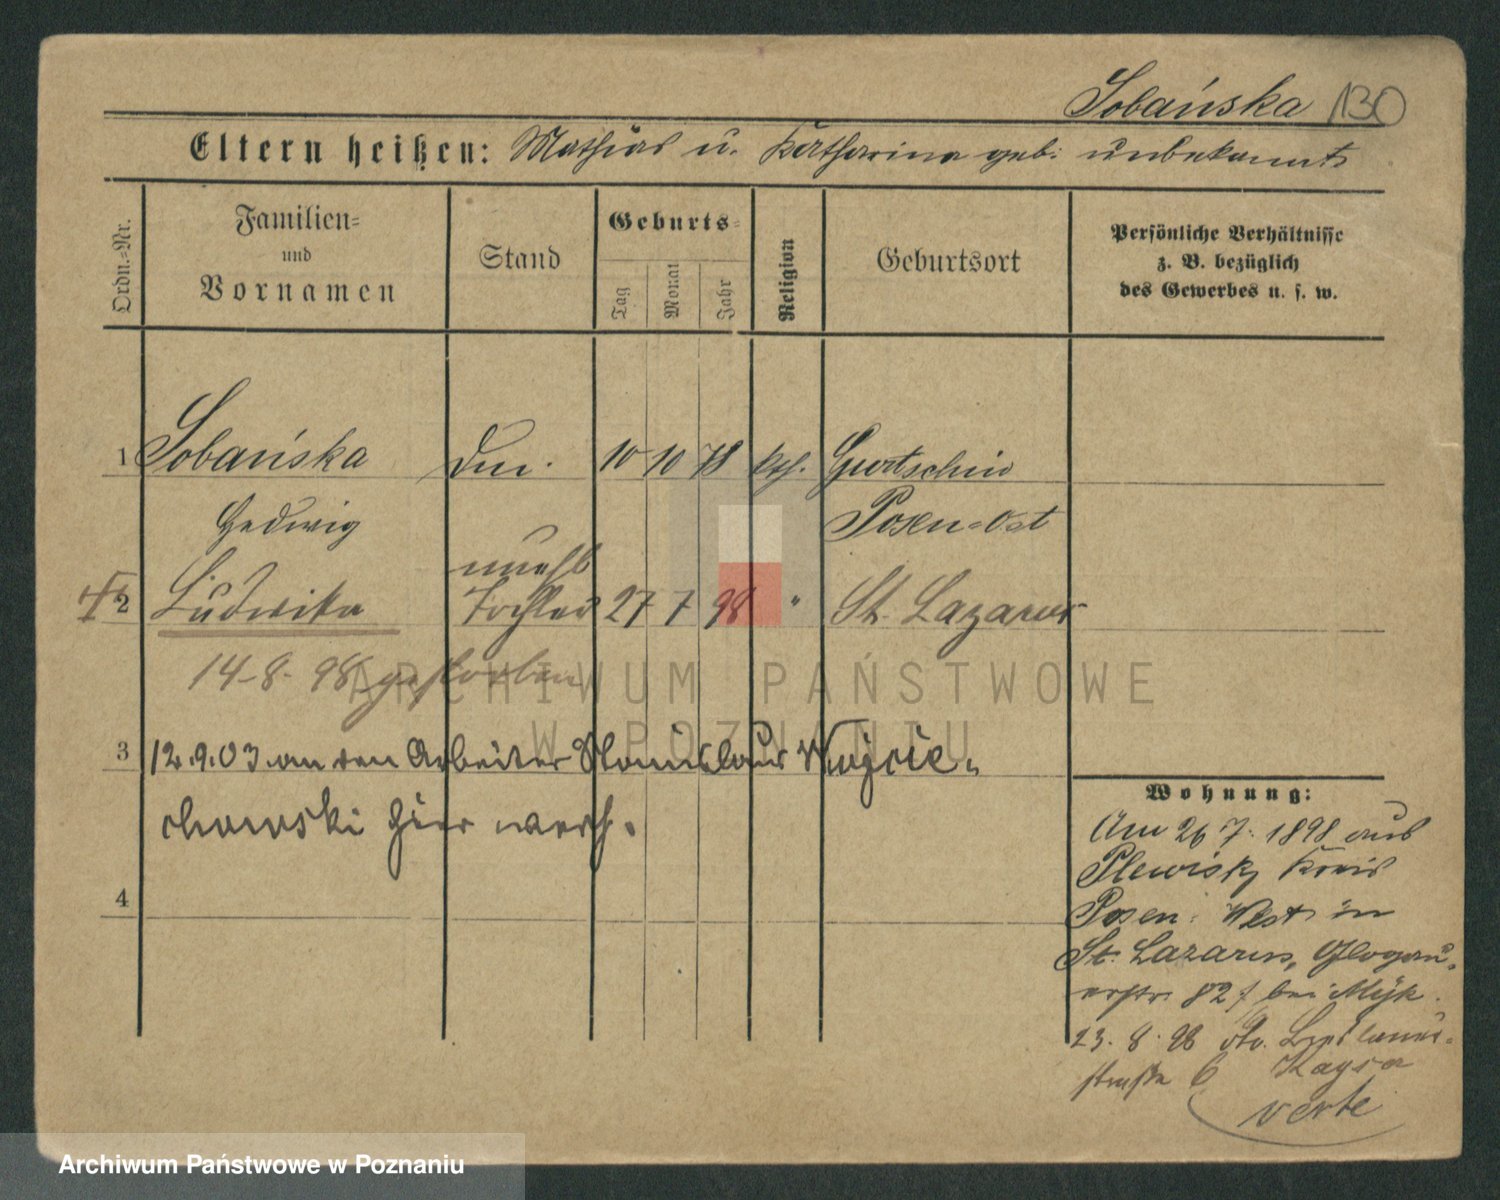 Sobańska 130
Eltern heißen: Mathias u. Katharina geb. unbekannt
Ordn.-Nr.
Familien-
und
Vornamen
Stand
Geburts-
Tag
Monat
Jahr
Religion
Geburtsort
Persönliche Verhältnisse
z. B. bezüglich
des Gewerbes u. s. w.
1 Sobańska 10 10 78 kth. Gurtschin
Hedwig Posen-Ost
unehl
2 Ludwika Tochter 27 7 98 " St. Lazarus
14-8-98 gestorben
ARCHIWUM PAŃSTWOWE
W POZNANIU
3 12.9.03 an den Arbeiter Stanislaus Wojcie-
chowski hier verh.
4
Wohnung:
Am 26 7. 1898 aus
Plewisk, Kreis
Posen. West in
St. Lazarus, Glogau-
erstr. 82 bei
23. 8. 98
straße 6
verte
Archiwum Państwowe w Poznaniu